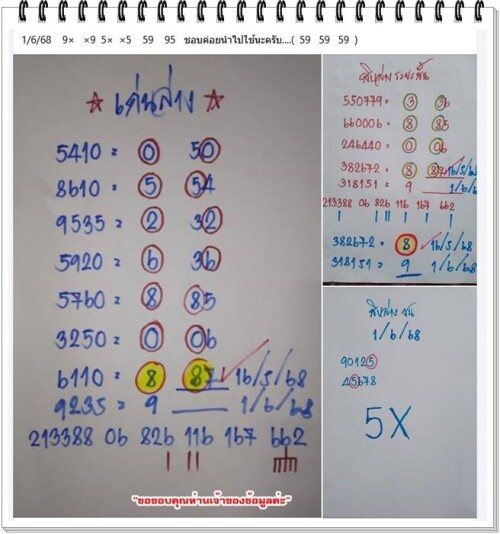 1/6/68 9× ×9 5× ×5 59 95 ชอบค่อยนำไปใช้นะครับ....( 59 59 59 )
☆ เด่นล่าง ☆
5410 = 0 50
8610 = 5 54
9535 = 2 32
5920 = 6 36
5760 = 8 85
3250 = 0 06
6110 = 8 87 ✓ 16/5/68
9235 = 9 1/6/68
213388 06 826 116 167 662
"ขอขอบคุณท่านเจ้าของข้อมูลค่ะ"
550779 = 3 36
660006 = 8 85
246440 = 0 06
382672 = 8 87 ✓ 16/5/68
318151 = 9 1/6/
213388 06 826 116 167 662
382672 = 8 ✓ 16/5/68
318151 = 9 1/6/68
1/6/68
90125
45678
5X